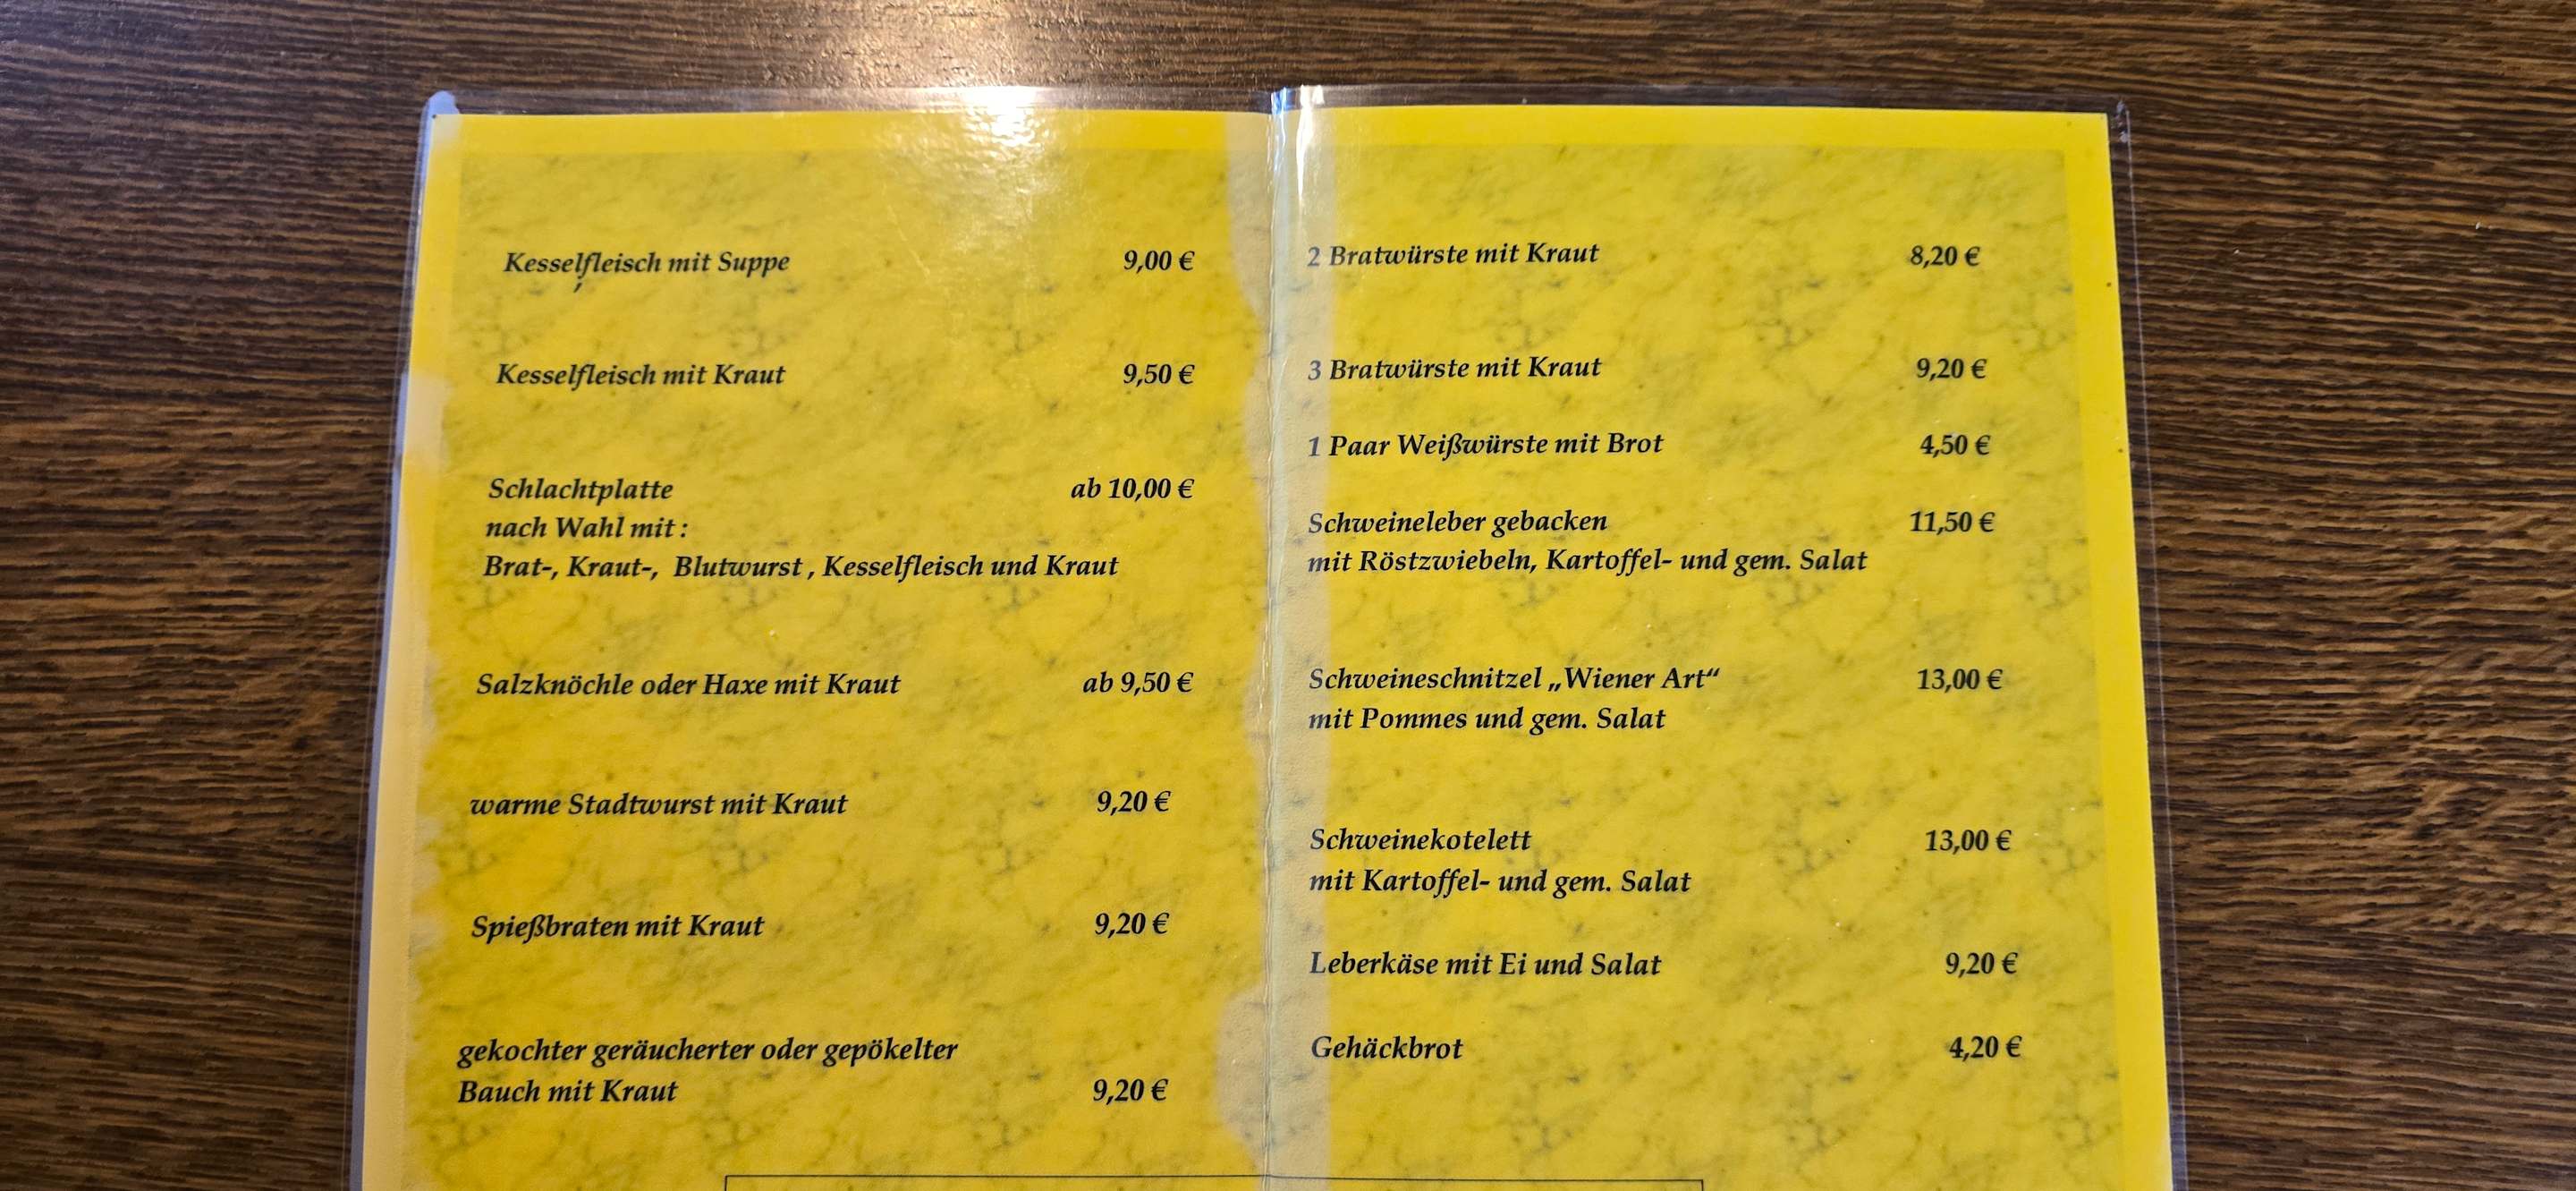 Kesselfleisch mit Suppe 9,00 €
Kesselfleisch mit Kraut 9,50 €
Schlachtplatte ab 10,00 €
nach Wahl mit :
Brat-, Kraut-, Blutwurst , Kesselfleisch und Kraut
Salzknöchle oder Haxe mit Kraut ab 9,50 €
warme Stadtwurst mit Kraut 9,20 €
Spießbraten mit Kraut 9,20 €
gekochter geräucherter oder gepökelter
Bauch mit Kraut 9,20 €
2 Bratwürste mit Kraut 8,20 €
3 Bratwürste mit Kraut 9,20 €
1 Paar Weißwürste mit Brot 4,50 €
Schweineleber gebacken 11,50 €
mit Röstzwiebeln, Kartoffel- und gem. Salat
Schweineschnitzel „Wiener Art“ 13,00 €
mit Pommes und gem. Salat
Schweinekotelett 13,00 €
mit Kartoffel- und gem. Salat
Leberkäse mit Ei und Salat 9,20 €
Gehäckbrot 4,20 €